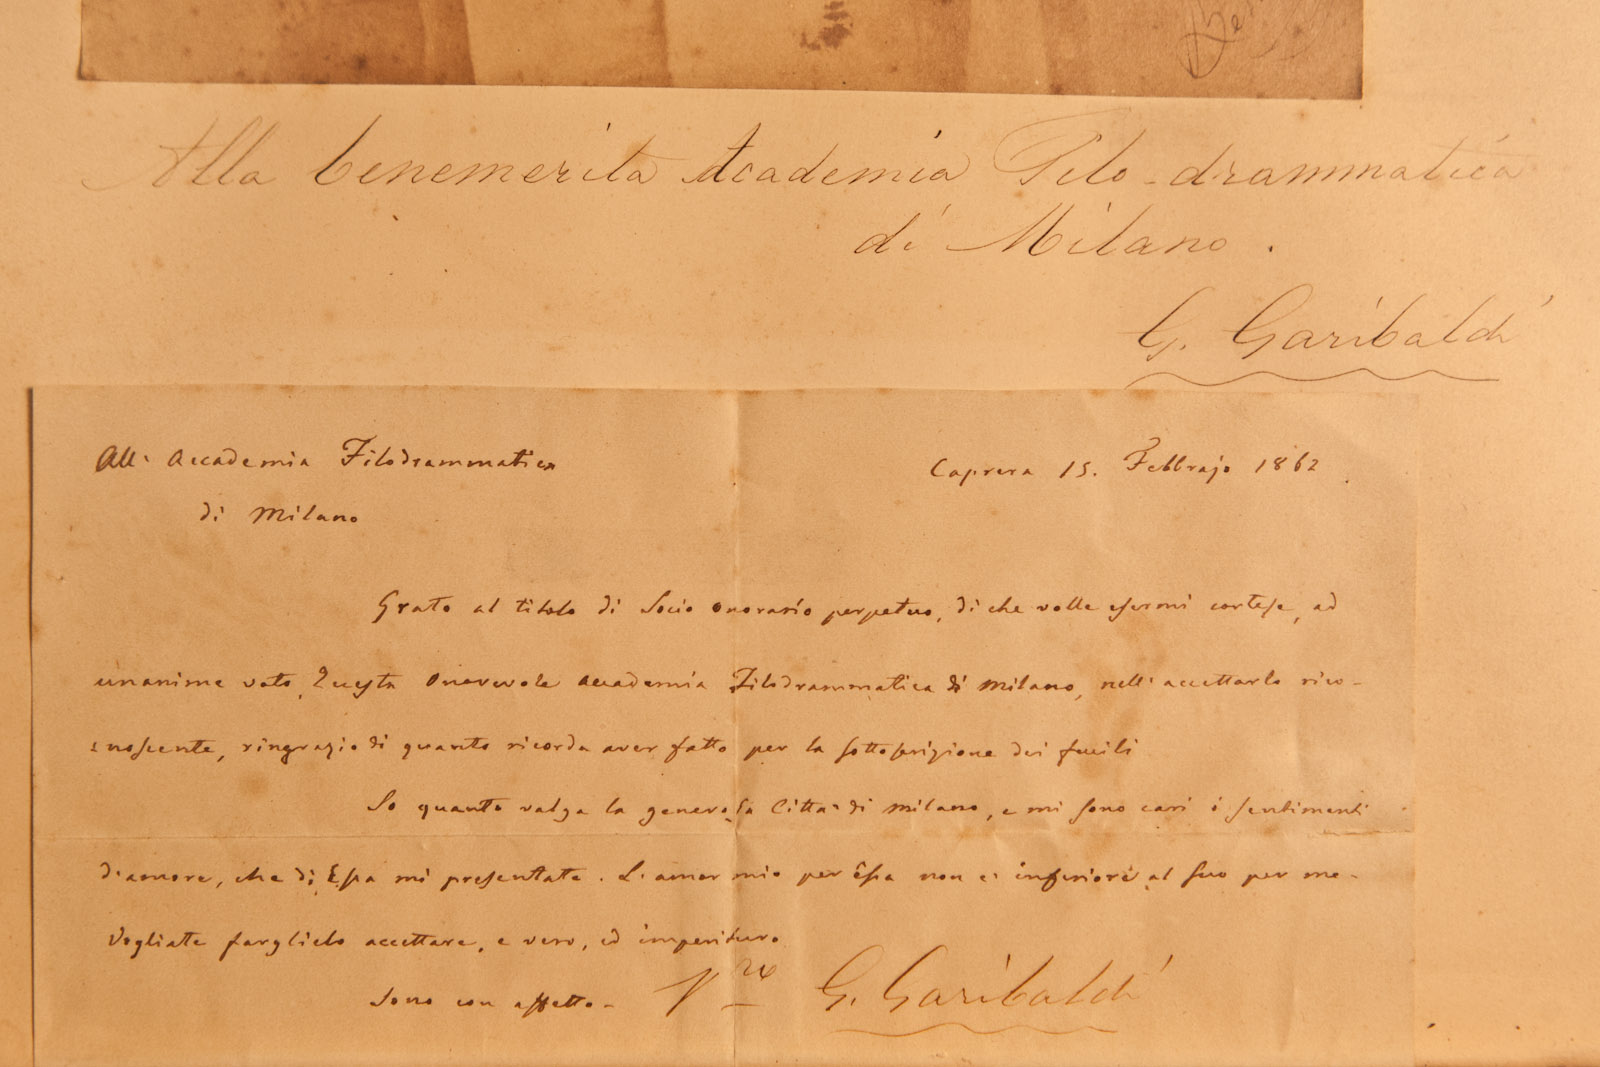 Alla benemerita Accademia Filo-drammatica
di Milano.
G. Garibaldi
All' Accademia Filodrammatica
di Milano
Caprera 15. Febbrajo 1862
Grato al titolo di Socio onorario perpetuo, di che volle esermi cortese, ad
unanime voto, Questa Onorevole Accademia Filodrammatica di Milano, nell' accettarlo rico-
noscente, ringrazio di quanto ricorda aver fatto per la sottoscrizione dei fucili
So quanto valga la generosa Città di Milano, e mi sono cari i sentimenti
d'amore, che di Essa mi presentate. L'amor mio per Essa non è inferiore al suo per me-
Vogliate farglielo accettare, e vero, ed imperituro
Sono con affetto- V.ro G. Garibaldi